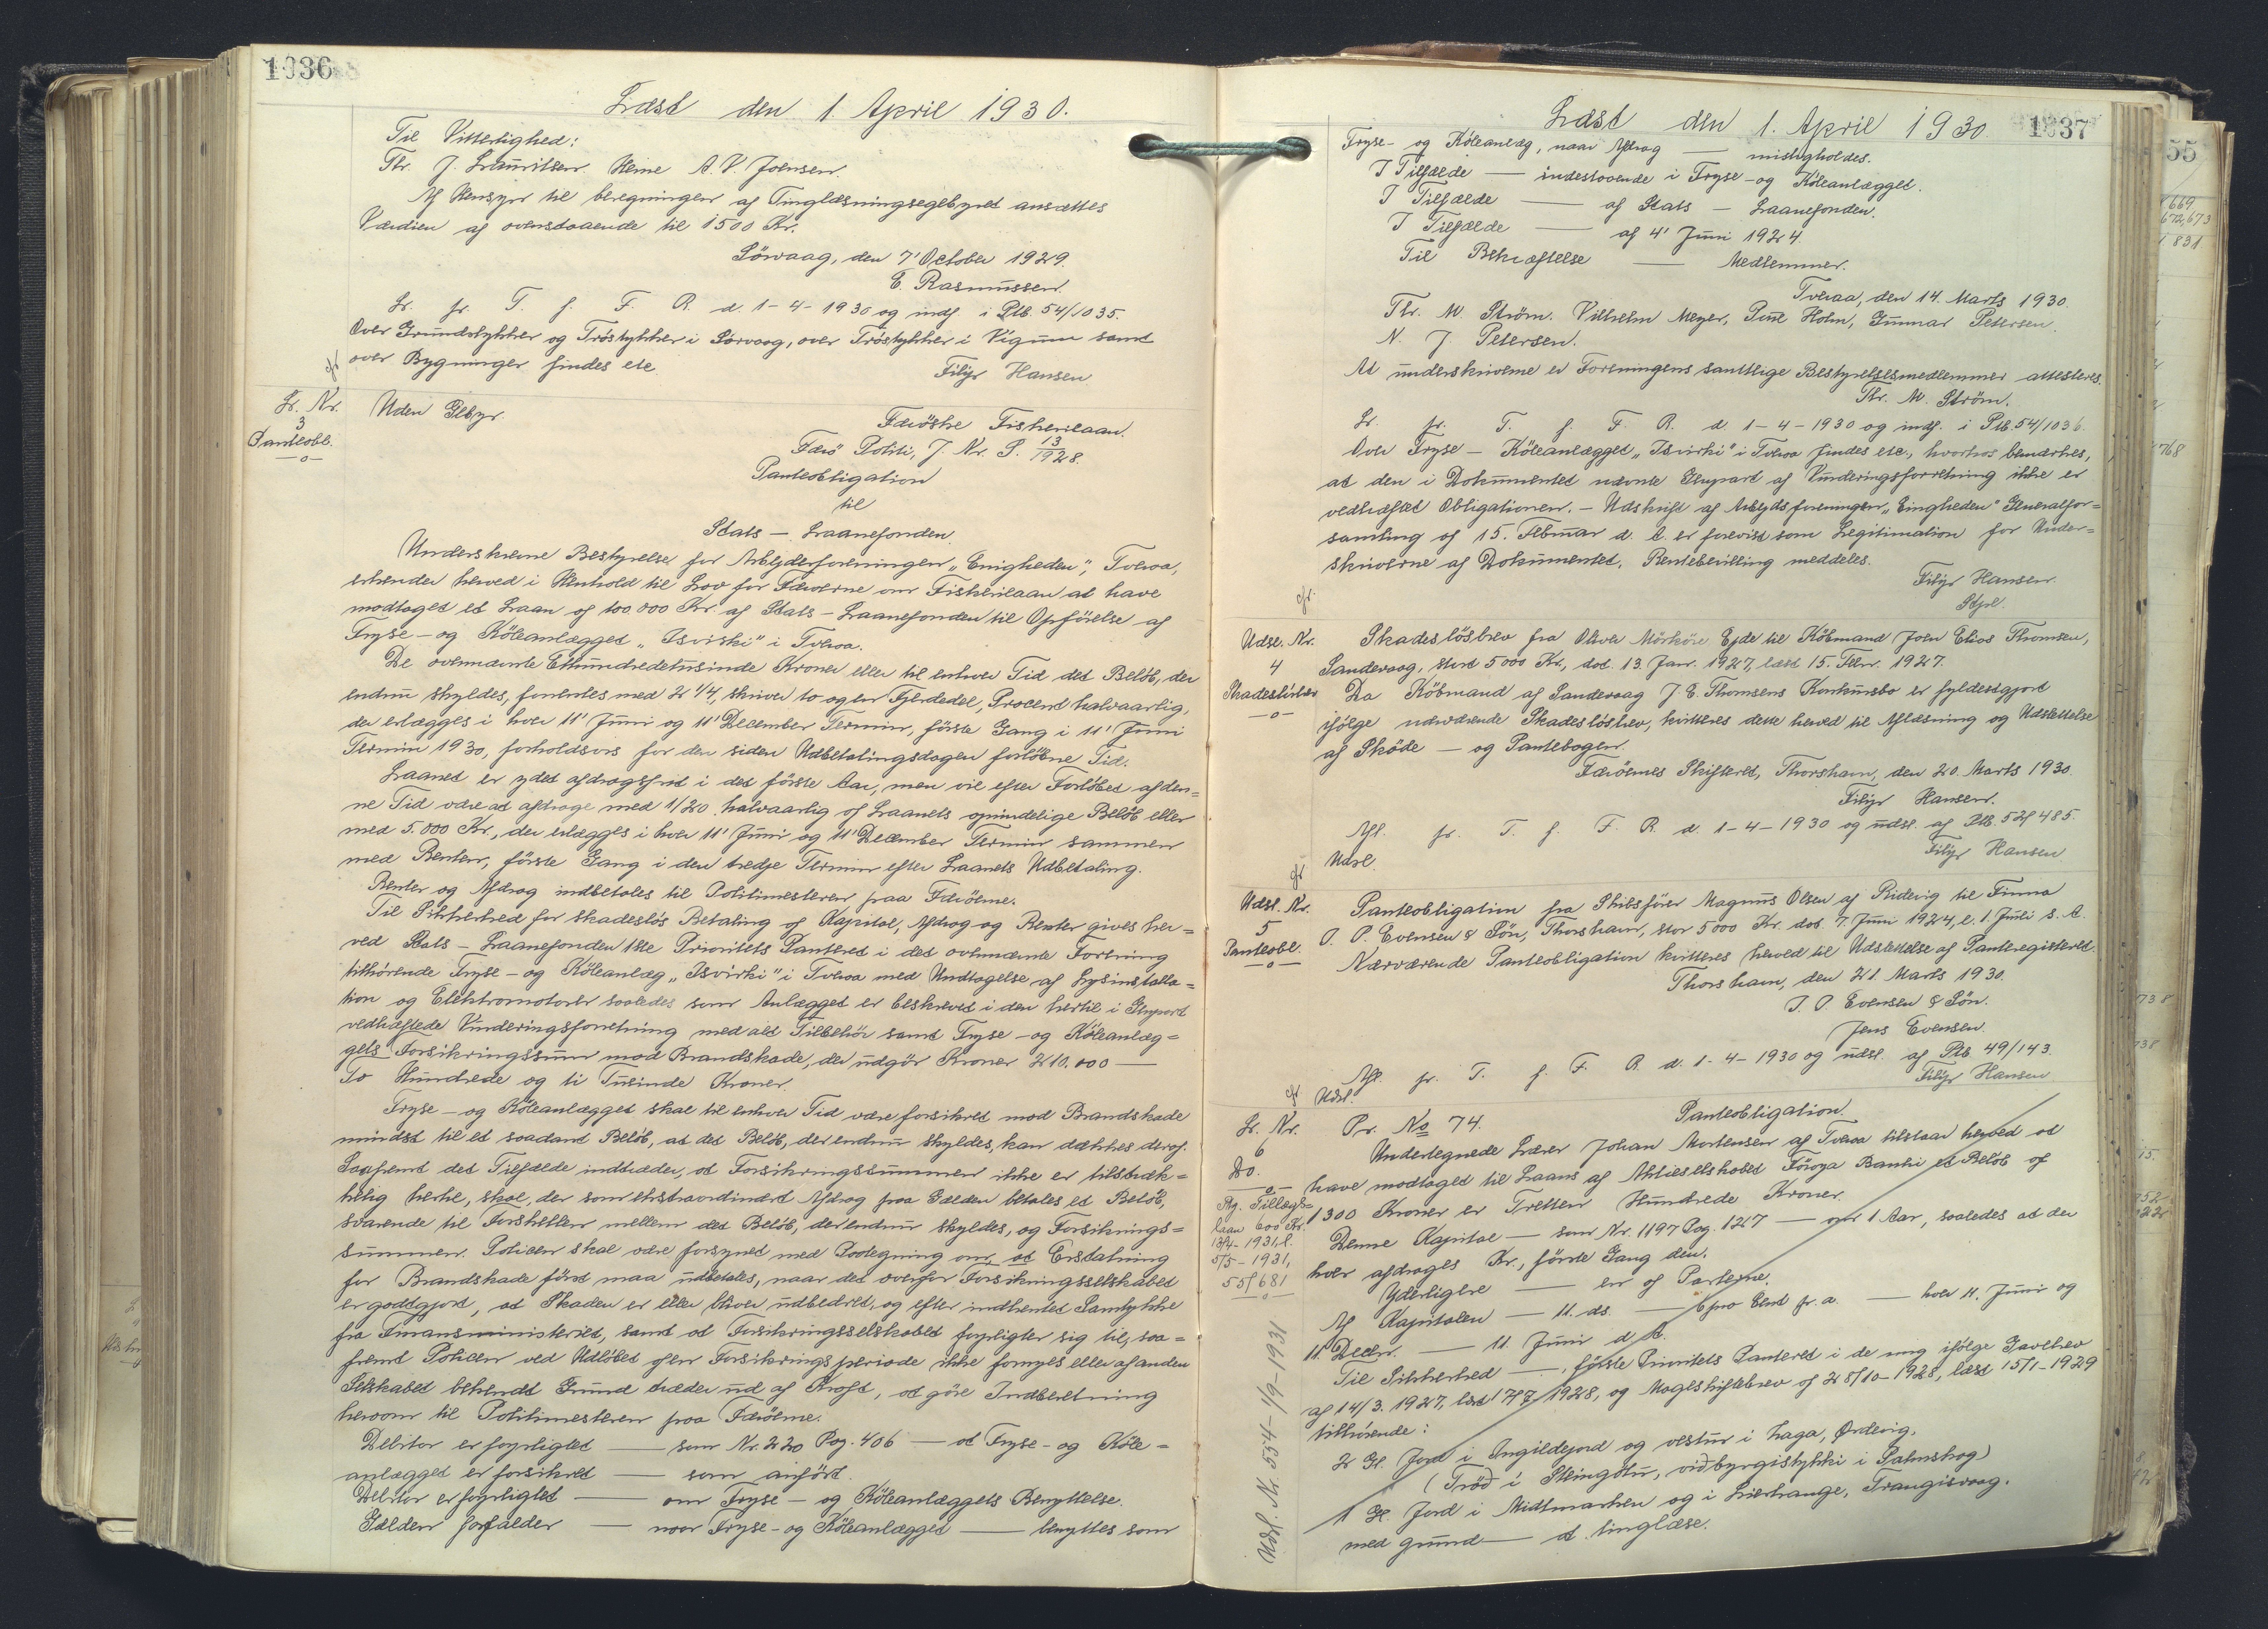 1036
Læst den 1. April 1930.
Til Vitterlighed:
Thr. J. Lauritsen. Heine A. P. Joensen.
Af Hensyn til beregningen af Tinglæsningsgebyret ansættes
Værdien af ovenstaaende til 1500 Kr.
Sörvaag, den 7' October 1929.
E. Rasmussen.
Lr. fr. T. f. F. R. d. 1-4-1930 og indf. i Ptb. 54/1035.
Over Grundstykker og Tröstykker i Sörvaag, over Tröstykker i Vigum samt
over Bygninger findes etc.
Filip Hansen
Lr. Nr.
3
Panteobl.
-o-
Uden Gebyr.
Færöske Fiskerilaan.
Færö Politi, J. Nr. P. 13/1928.
Panteobligation
til
Stats - Laanefonden.
Underskrevne Bestyrelse for Arbejderforeningen „Enigheden”, Tveraa,
erkender herved i Henhold til Lov for Færöerne om Fiskerilaan at have
modtaget et Laan af 100 000 Kr. af Stats - Laanefonden til Opförelse af
Fryse - og Köleanlægget „Isvirki” i Tveraa.
De ovennævnte Ethundredetusinde Kroner eller til enhver Tid det Belöb, der
endnu skyldes, forrentes med 2 1/4, skriver to og en Fjerdedel, Procent halvaarlig,
der erlægges i hver 11' Juni og 11' December Termin, förste Gang i 11' Juni
Termin 1930, forholdsvis for den siden Udbetalingsdagen forlöbne Tid.
Laanet er ydet afdragsfrit i det förste Aar, men vil efter Forlöbet af den=
ne Tid være at afdrage med 1/20 halvaarlig af Laanets oprindelige Belöb eller
med 5.000 Kr., der erlægges i hver 11' Juni og 11' December Termin sammen
med Renten, förste Gang i den tredje Termin efter Laanets Udbetaling.
Renter og Afdrag indbetales til Politimesteren paa Færöerne.
Til Sikkerhed for skadeslös Betaling af Kapital, Afdrag og Renter gives her=
ved Stats - Laanefonden 1ste Prioritets Panteret i det ovennævnte Forening
tilhörende Fryse - og Köleanlæg „Isvirki” i Tveraa med Undtagelse af Lysinstalla=
tion og Elektromotorer saaledes som Anlægget er beskrevet i den hertil i Genpart
vedhæftede Vurderingsforretning med alt Tilbehör samt Fryse - og Köleanlæg=
gets Forsikringssum mod Brandskade, der udgör Kroner 210.000 —
To Hundrede og ti Tusinde Kroner.
Fryse - og Köleanlægget skal til enhver Tid være forsikret mod Brandskade
mindst til et saadant Belöb, at det Belöb, der endnu skyldes, kan dækkes deraf.
Saafremt det Tilfælde indtræder, at Forsikringssummen ikke er tilstræk=
kelig hertil, skal, der som ekstraordinært Afdrag paa Gælden betales et Belöb,
svarende til Forskellen mellem det Belöb, der endnu skyldes, og Forsikrings=
summen. Policen skal være forsynet med Paategning om, at Erstatning
for Brandskade först maa udbetales, naar det overfor Forsikringsselskabet
er godtgjort, at Skaden er eller bliver udbedret, og efter indhentet Samtykke
fra Finansministeriet, samt at Forsikringsselskabet forpligter sig til, saa=
fremt Policen ved Udlöbet af en Forsikringsperiode ikke fornyes eller af anden
Selskabet bekendt Grund træder ud af Kraft, at göre Indberetning
herom til Politimesteren paa Færöerne.
Debitor er forpligtet — som Nr. 220 Pag. 406 — at Fryse - og Köle=
anlægget er forsikret — som anfört.
Debitor er forpligtet — om Fryse - og Köleanlæggets Benyttelse.
Gælden forfalder — naar Fryse - og Köleanlægget — benyttes som
1037
Læst den 1. April 1930.
Fryse- og Köleanlæg, naar Afdrag — misligholdes.
I Tilfælde — indestaaende i Fryse - og Köleanlægget.
I Tilfælde — af Stats - Laanefonden.
I Tilfælde — af 4' Juni 1924.
Til Bekræftelse — Medlemmer.
Tveraa, den 14. Marts 1930.
Thr. M. Ström. Vilhelm Meyer, Poul Holm, Gunnar Petersen.
N. J. Petersen.
At underskriverne er Foreningens samtlige Bestyrelsesmedlemmer attesteres.
Thr. M. Ström.
Lr. fr. T. f. F. R. d. 1-4-1930 og indf. i Ptb. 54/1036.
Over Fryse - Köleanlægget „Isvirki” i Tveraa findes etc., hvorhos bemærkes,
at den i Dokumentet nævnte Genpart af Vurderingsforretning ikke er
vedhæftet Obligationen. - Udskrift af Arbejdsforeningen „Eingheden” Generalfor=
samling af 15. Februar d. A. er forevist som Legitimation for Under=
skriverne af Dokumentet. Rentebevilling meddeles.
Filip Hansen.
Stpl.
Udsl. Nr.
4
Skadeslösbrev
-o-
Skadeslösbrev fra Oliver Mörköre Ejde til Köbmand Joen Elias Thomsen,
Sandevaag, stort 5000 Kr., dat. 13. Janr. 1927, læst 15. Febr. 1927.
Da Köbmand af Sandevaag J. E. Thomsens Konkursbo er fyldestgjort
ifölge nærværende Skadeslösbrev, kvitteres dette herved til Aflæsning og Udslettelse
af Sköde - og Pantebogen.
Færöernes Skifteret, Thorshavn, den 20. Marts 1930.
Filip Hansen.
Afl. fr. T. f. F. R. d. 1-4-1930 og udsl. af Ptb. 52/485.
Udsl.
Filip Hansen
Udsl. Nr.
5
Panteobl.
-o-
Panteobligation fra Skibsförer Magnus Olsen af Ridevig til Firma
J. P. Evensen & Sön, Thorshavn, stor 5000 Kr. dat. 7. Juni 1924, l. 1. Juli s. A.
Nærværende Panteobligation kvitteres herved til Udslettelse af Panteregisteret.
Thorshavn, den 21. Marts 1930.
J. P. Evensen & Sön.
Jens Evensen.
Afl. fr. T. f. F. R. d. 1-4-1930 og udsl. af Ptb. 49/143.
Udsl.
Filip Hansen
Lr. Nr.
6
Do.
-o-
Pr. No 74.
Panteobligation.
Undertegnede Lærer Johan Mortensen af Tveraa tilstaar herved at
have modtaget til Laans af Aktieselskabet Föroya Banki et Belöb af
1300 Kroner er Tretten Hundrede Kroner.
Denne Kapital — som Nr. 1197 Pag. 1267 — om 1 Aar, saaledes at der
hver afdrages Kr., förste Gang den.
Yderligere — en af Parterne.
Af Kapitalen — 11. ds. — 6 pro Cent pr. a. — hver 11. Juni og
11. Decbr. — 11. Juni d. A.
Til Sikkerhed — förste Prioritets Panteret i de mig ifölge Gavebrev
af 14/3. 1927, læst 1928, og Mageskiftebrev af 28/10-1928, læst 15/1-1929
tilhörende:
2 Gl. Jord i Angildejord og vestur i Laga, Ördevig,
(Tröð i Steingötu, við byrgistykki i Palmskog)
1 Gl. Jord i Midtmarken og i Lierhauge, Trangisvaag.
med grund — at tinglæse.
Pg. Tillægs=
laan 600 Kr.
13/4-1931, l.
5/5-1931,
55/681
-o-
Udsl. Nr. 554-1/9-1931
55
669
672, 673
831
768
738
738
15.
952